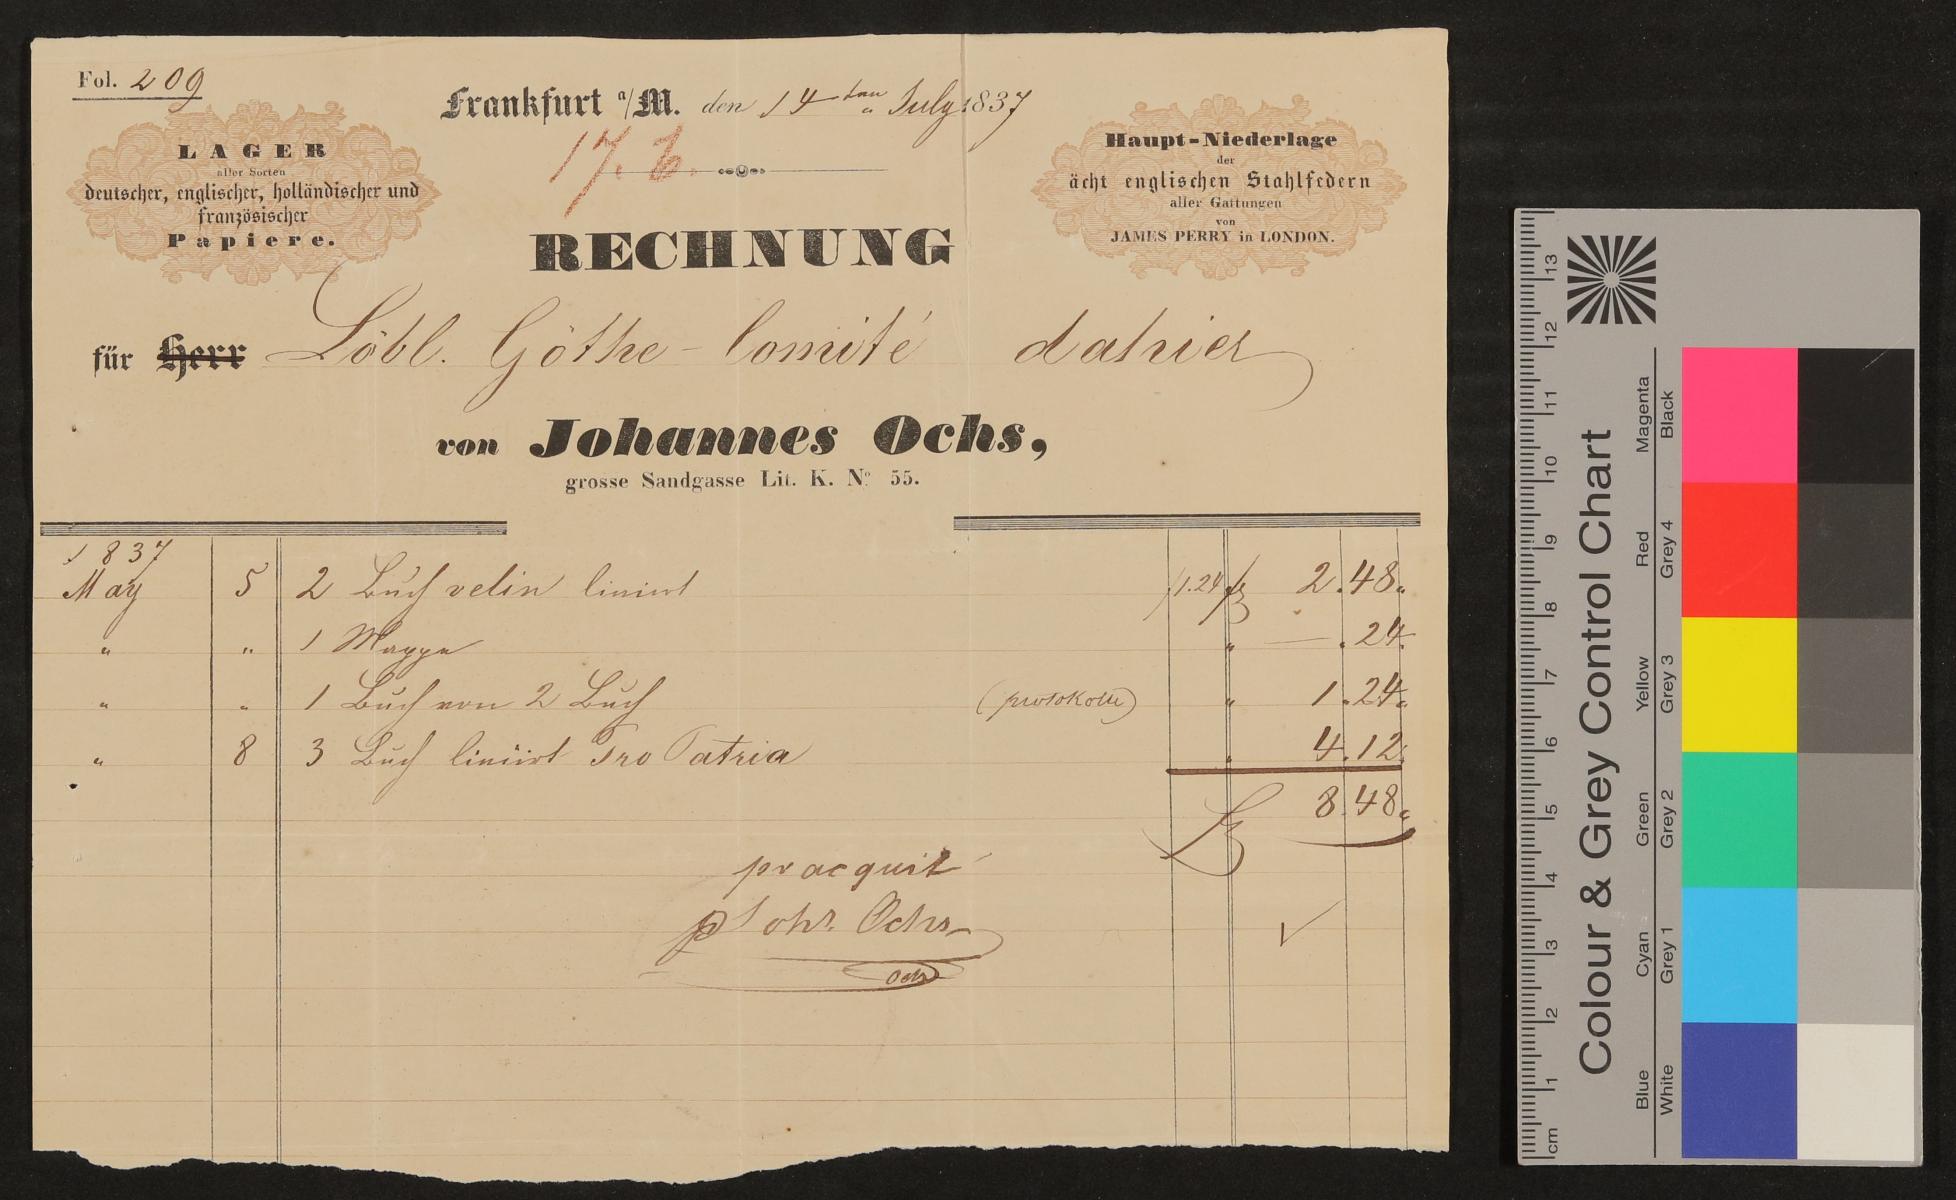 Fol. 209
Frankfurt a/M. den 14ten July 1837
17. b.
LAGER
aller Sorten
deutscher, englischer, holländischer und
französischer
Papiere.
Haupt-Niederlage
der
ächt englischen Stahlfedern
aller Gattungen
von
JAMES PERRY in LONDON.
RECHNUNG
für Herr Löbl. Göthe-Comité dahier
von Johannes Ochs,
grosse Sandgasse Lit. K. No. 55.
1837
May 5 2 Buch velin liniirt 1.24 f 2.48.
" " 1 Mappe " — .24.
" " 1 Buch von 2 Buch (protokolle) " 1.24.
" 8 3 Buch liniirt Pro Patria " 4.12.
f 8.48.
pr acquit
p Johs. Ochs
Ochs
Colour & Grey Control Chart
Blue Cyan Green Yellow Red Magenta
White Grey 1 Grey 2 Grey 3 Grey 4 Black
cm 1 2 3 4 5 6 7 8 9 10 11 12 13